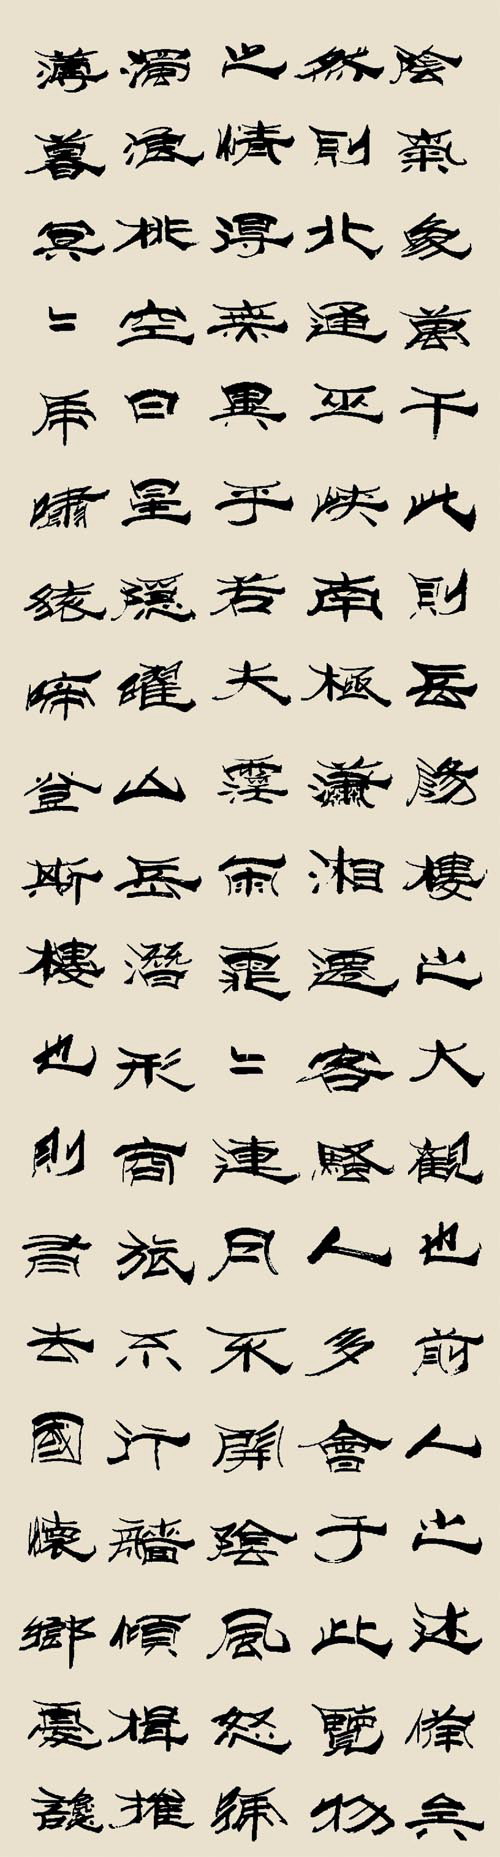 陰氣象萬千此則岳陽樓之大觀也前人之述備矣
然則北通巫峽南極瀟湘遷客騷人多會于此覽物
之情得無異乎若夫霪雨霏〻連月不開陰風怒號
濁浪排空日星隱曜山岳潛形商旅不行檣傾楫摧
薄暮冥〻虎嘯猿啼登斯樓也則有去國懷鄉憂讒